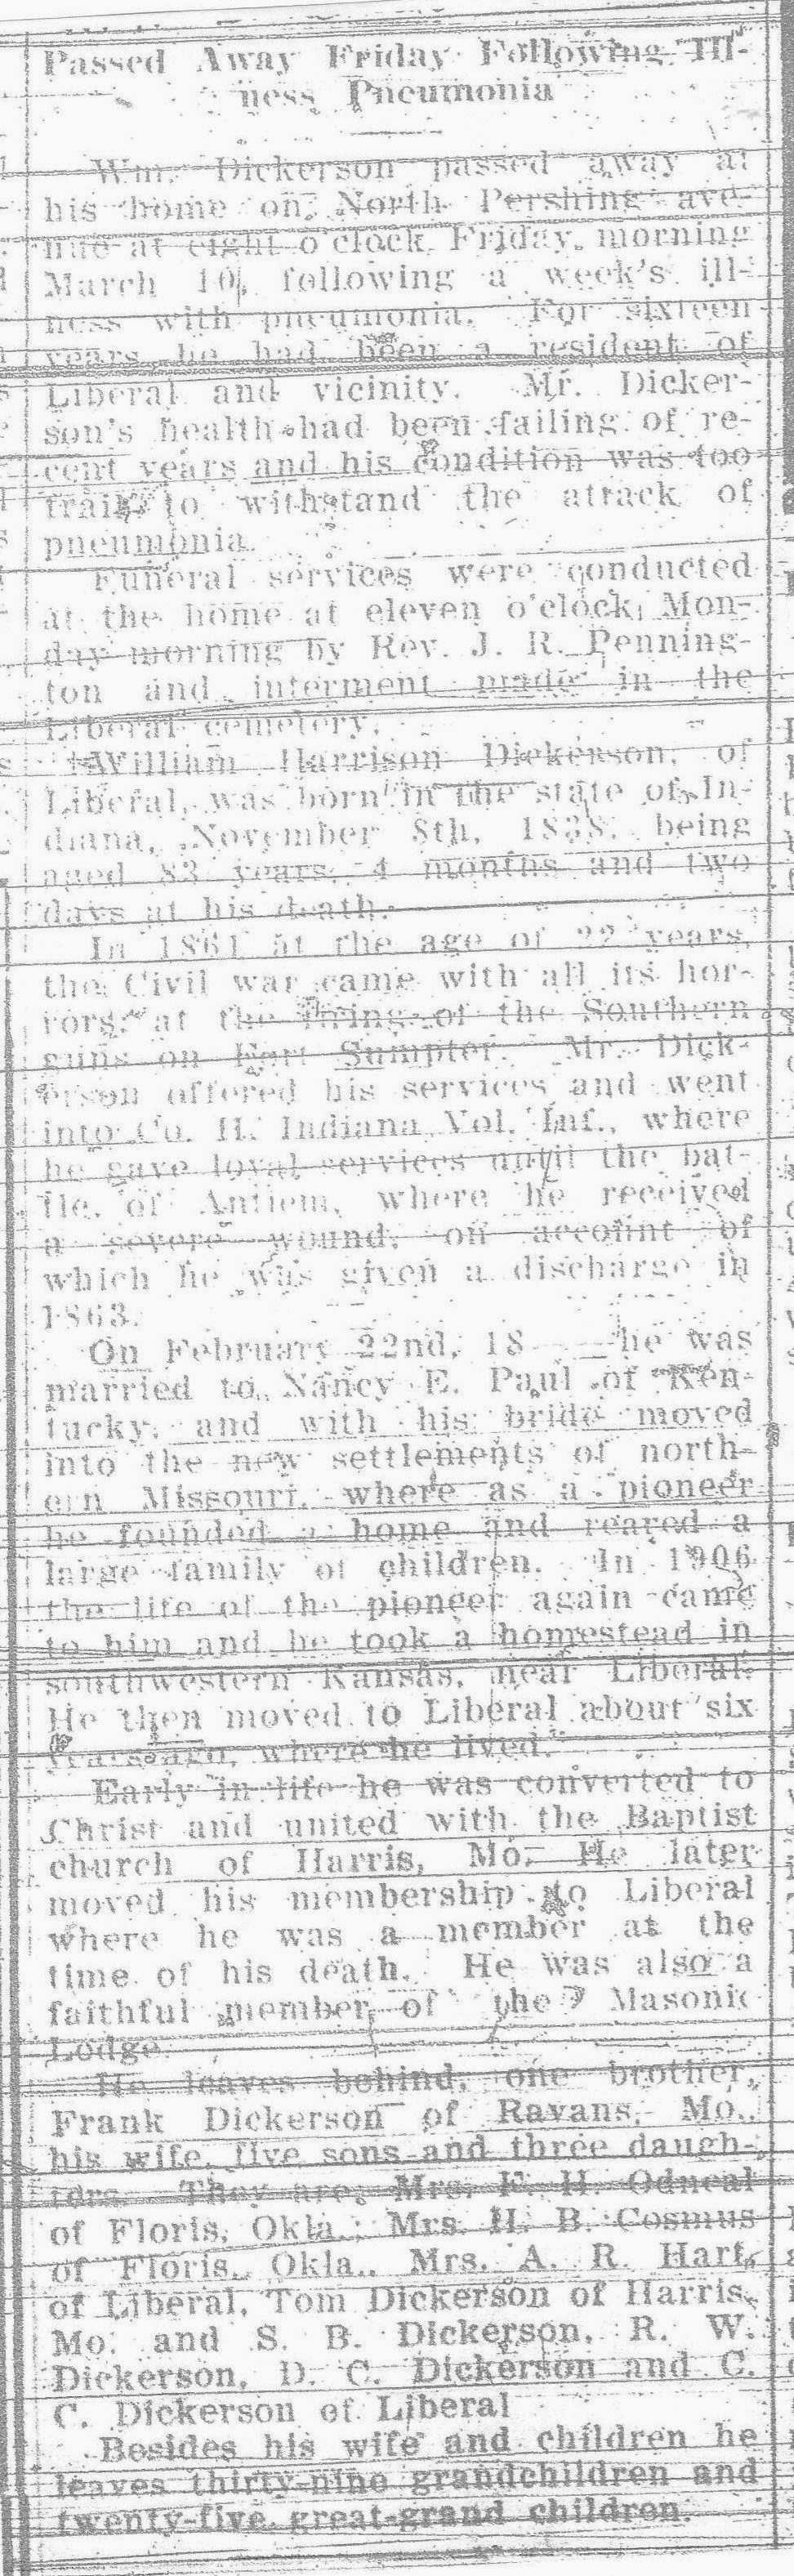 Passed Away Friday Following Ill-
ness Pneumonia
Wm. Dickerson passed away at
his home on North Pershing ave-
nue at eight o'clock Friday morning
March 10, following a week's ill-
ness with pneumonia. For sixteen
years he had been a resident of
Liberal and vicinity. Mr. Dicker-
son's health had been failing of re-
cent years and his condition was too
frail to withstand the attack of
pneumonia.
Funeral services were conducted
at the home at eleven o'clock Mon-
day morning by Rev. J. R. Penning-
ton and interment made in the
Liberal cemetery.
William Harrison Dickerson, of
Liberal, was born in the state of In-
diana, November 8th, 1838, being
aged 83 years, 4 months and two
days at his death.
In 1861 at the age of 22 years,
the Civil war came with all its hor-
rors, at the firing of the Southern
guns on Fort Sumpter. Mr. Dick-
erson offered his services and went
into Co. H. Indiana Vol. Inf., where
he gave loyal services until the bat-
tle of Antiem, where he received
a severe wound, on account of
which he was given a discharge in
1863.
On February 22nd, 18 he was
married to Nancy E. Paul of Ken-
tucky, and with his bride moved
into the new settlements of north-
ern Missouri, where as a pioneer
he founded a home and reared a
large family of children. In 1906
the life of the pioneer again came
to him and he took a homestead in
southwestern Kansas, near Liberal.
He then moved to Liberal about six
years ago, where he lived.
Early in life he was converted to
Christ and united with the Baptist
church of Harris, Mo. He later
moved his membership to Liberal
where he was a member at the
time of his death. He was also a
faithful member of the Masonic
Lodge.
He leaves behind, one brother,
Frank Dickerson of Ravans, Mo.,
his wife, five sons and three daugh-
ters. They are, Mrs. F. H. Odneal
of Floris, Okla.; Mrs. H. B. Cosmus
of Floris, Okla., Mrs. A. R. Hart,
of Liberal, Tom Dickerson of Harris,
Mo. and S. B. Dickerson, R. W.
Dickerson, D. C. Dickerson and C.
C. Dickerson of Liberal
Besides his wife and children he
leaves thirty-nine grandchildren and
twenty-five great-grand children.